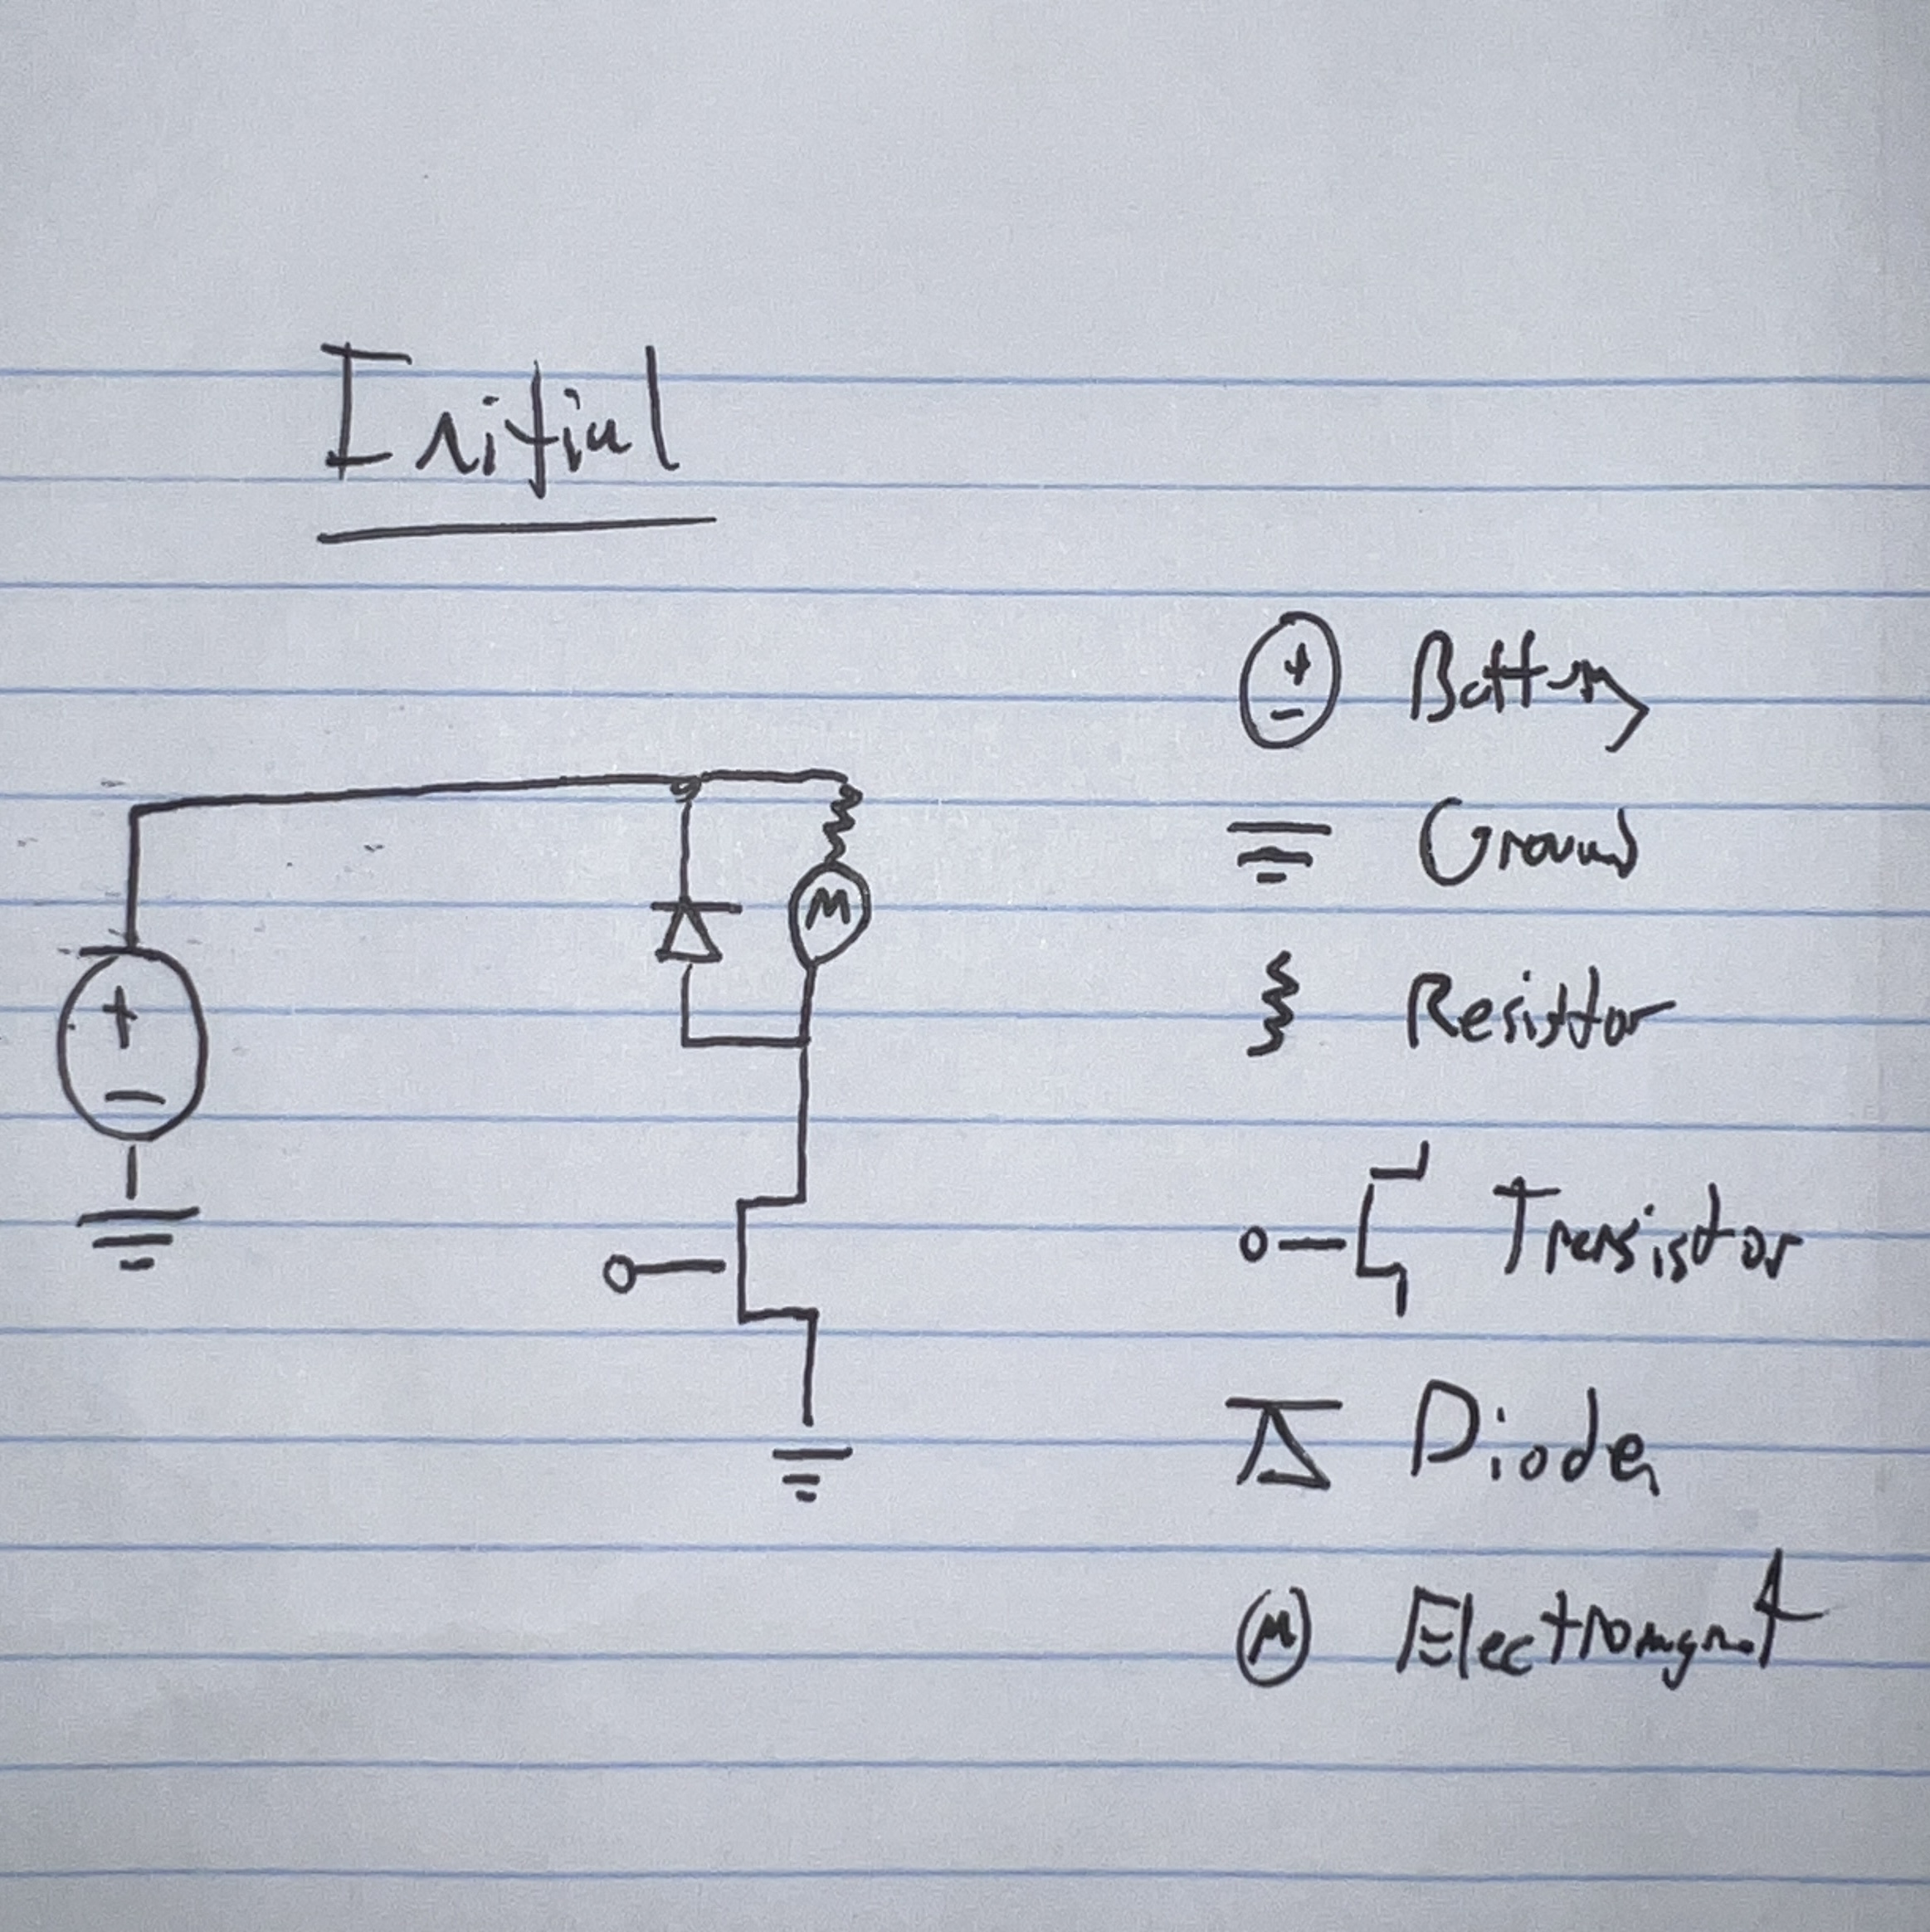 Initial
+
-
M
+
-
Battery
Ground
Resisttor
Transistor
Diode
M
Electromgnt